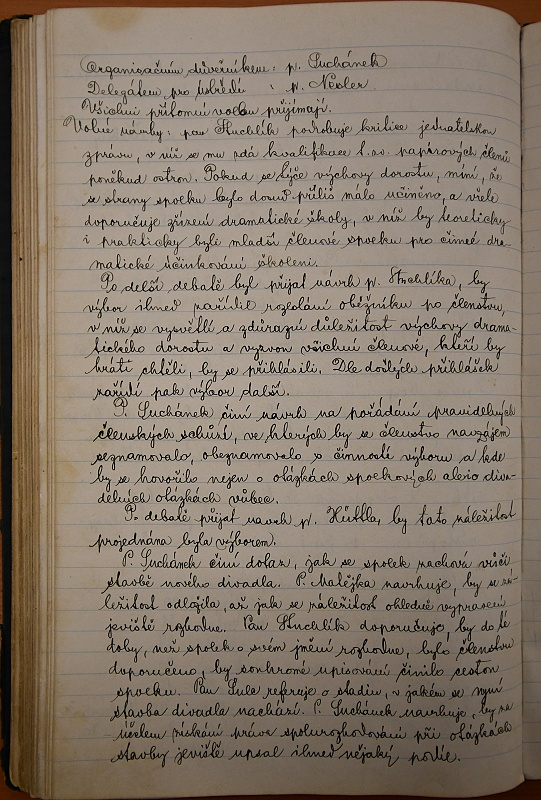 Organisačním důvěrníkem: p. Suchánek
Delegátem pro ústředí : p. Nesler
Všichni přítomní volbu přijímají.
Volné návrhy: pan Stuchlík podrobuje kritice jednatelskou
zprávu, v níž se mu zdá kvalifikace t.zv. papírových členů
poněkud ostrou. Pokud se týče výchovy dorostu, míní, že
se strany spolku bylo dosud příliš málo učiněno, a vřele
doporučuje zřízení dramatické školy, v níž by teoreticky
i prakticky byli mladší členové spolku pro činné dra-
matické účinkování školeni.
Po delší debatě byl přijat návrh p. Stuchlíka, by
výbor ihned nařídil rozeslání oběžníku po členstvu,
v níž se vysvětlí a zdůrazní důležitost výchovy drama-
tického dorostu a vyzvou všichni členové, kteří by
hráti chtěli, by se přihlásili. Dle došlých přihlášek
zařídí pak výbor další.
P. Suchánek činí návrh na pořádání pravidelných
členských schůzí, ve kterých by se členstvo navzájem
seznamovalo, obeznamovalo s činností výboru a kde
by se hovořilo nejen o otázkách spolkových ale i o diva-
delních otázkách vůbec.
Po debatě přijat návrh p. Hüttla, by tato záležitost
projednána byla výborem.
P. Suchánek činí dotaz, jak se spolek zachová vůči
stavbě nového divadla. P. Matějka navrhuje, by se zá-
ležitost odložila, až jak se záležitost ohledně vypravení
jeviště rozhodne. Pan Stuchlík doporučuje, by do té
doby, než spolek o svém jmění rozhodne, bylo členstvu
doporučeno, by soukromé upisování činilo cestou
spolku. Pan Šule referuje o stadiu, v jakém se nyní
stavba divadla nachází. P. Suchánek navrhuje, by za
účelem získání práva spolurozhodování při otázkách
stavby jeviště upsal ihned nějaký podíl.